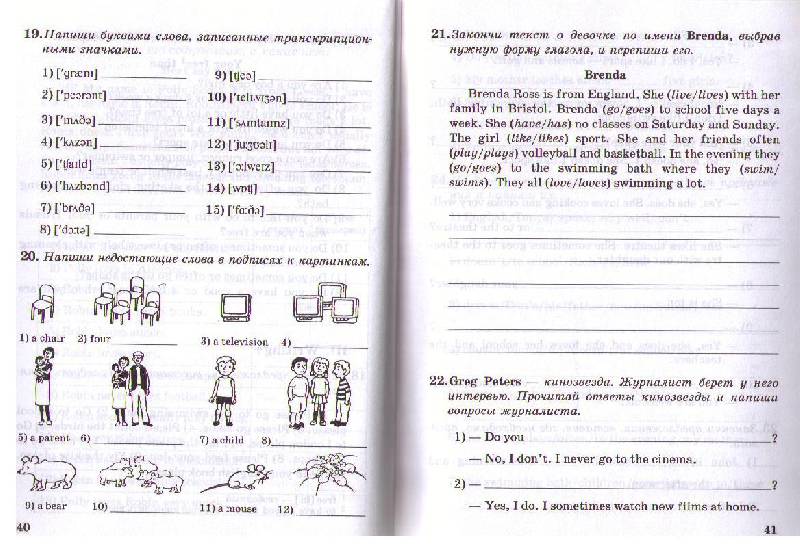 19. Напиши буквами слова, записанные транскрипцион-
ными значками.
1) ['grænɪ]
2) ['peərənt]
3) ['mʌðə]
4) ['kʌzən]
5) ['tʃaɪld]
6) ['hʌzbənd]
7) ['brʌðə]
8) ['dɔ:tə]
9) [tʃeə]
10) ['telɪvɪʒən]
11) ['sʌmtaɪmz]
12) ['ju:ʒʊəlɪ]
13) ['ɔ:lweɪz]
14) [wɒtʃ]
15) ['fɑ:ðə]
20. Напиши недостающие слова в подписях к картинкам.
1) a chair 2) four
3) a television 4)
5) a parent 6)
7) a child 8)
9) a bear 10)
11) a mouse 12)
40
21. Закончи текст о девочке по имени Brenda, выбрав
нужную форму глагола, и перепиши его.
Brenda
Brenda Ross is from England. She (live/lives) with her
family in Bristol. Brenda (go/goes) to school five days a
week. She (have/has) no classes on Saturday and Sunday.
The girl (like/likes) sport. She and her friends often
(play/plays) volleyball and basketball. In the evening they
(go/goes) to the swimming bath where they (swim/
swims). They all (love/loves) swimming a lot.
22. Greg Peters — кинозвезда. Журналист берет у него
интервью. Прочитай ответы кинозвезды и напиши
вопросы журналиста.
1) — Do you ?
— No, I don't. I never go to the cinema.
2) — ?
— Yes, I do. I sometimes watch new films at home.
41